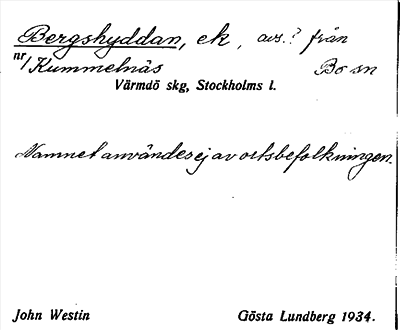 Bergshyddan, ek, avs.? från
nr/Kummelnäs Bo sn
Värmdö skg, Stockholms l.
Namnet användes ej av ortsbefolkningen.
John Westin Gösta Lundberg 1934.